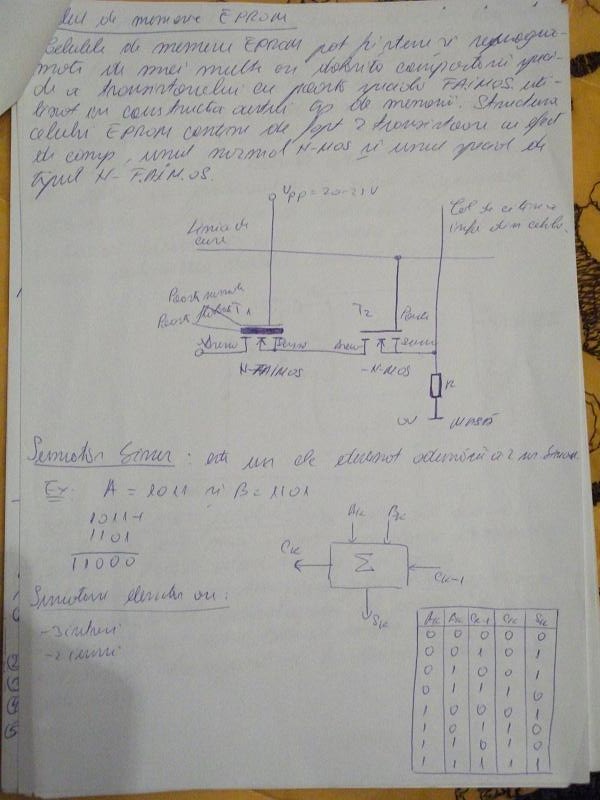 de memorie EPROM
Celulele de memorie EPROM pot fi sterse si reprogra-
mate de mai multe ori datorita comportarii speci-
de a tranzistorului cu poarta speciala FAIMOS uti-
lizat in constructia acestui tip de memorii. Structura
celulei EPROM contine de fapt 2 tranzistoare cu efect
de camp, unul normal N-MOS si unul special de
tipul N-FAIMOS.
Vpp = 20-21V
Linia de
Col de citire a
celula.
T1
T2
Poarta
Drena
Sursa
Drena
Sursa
N-FAIMOS
-N-MOS
R
0V
MASA
Sumator binar : este un de
Ex: A = 1011 si B = 1101
1011+
1101
11000
Ak Bk
Ck
Σ
Ck-1
Sk
Sumatorul elementar are:
-3 intrari
-2 iesiri
Ak Bk Ck-1 Ck Sk
0 0 0 0 0
0 0 1 0 1
0 1 0 0 1
0 1 1 1 0
1 0 0 0 1
1 0 1 1 0
1 1 0 1 0
1 1 1 1 1